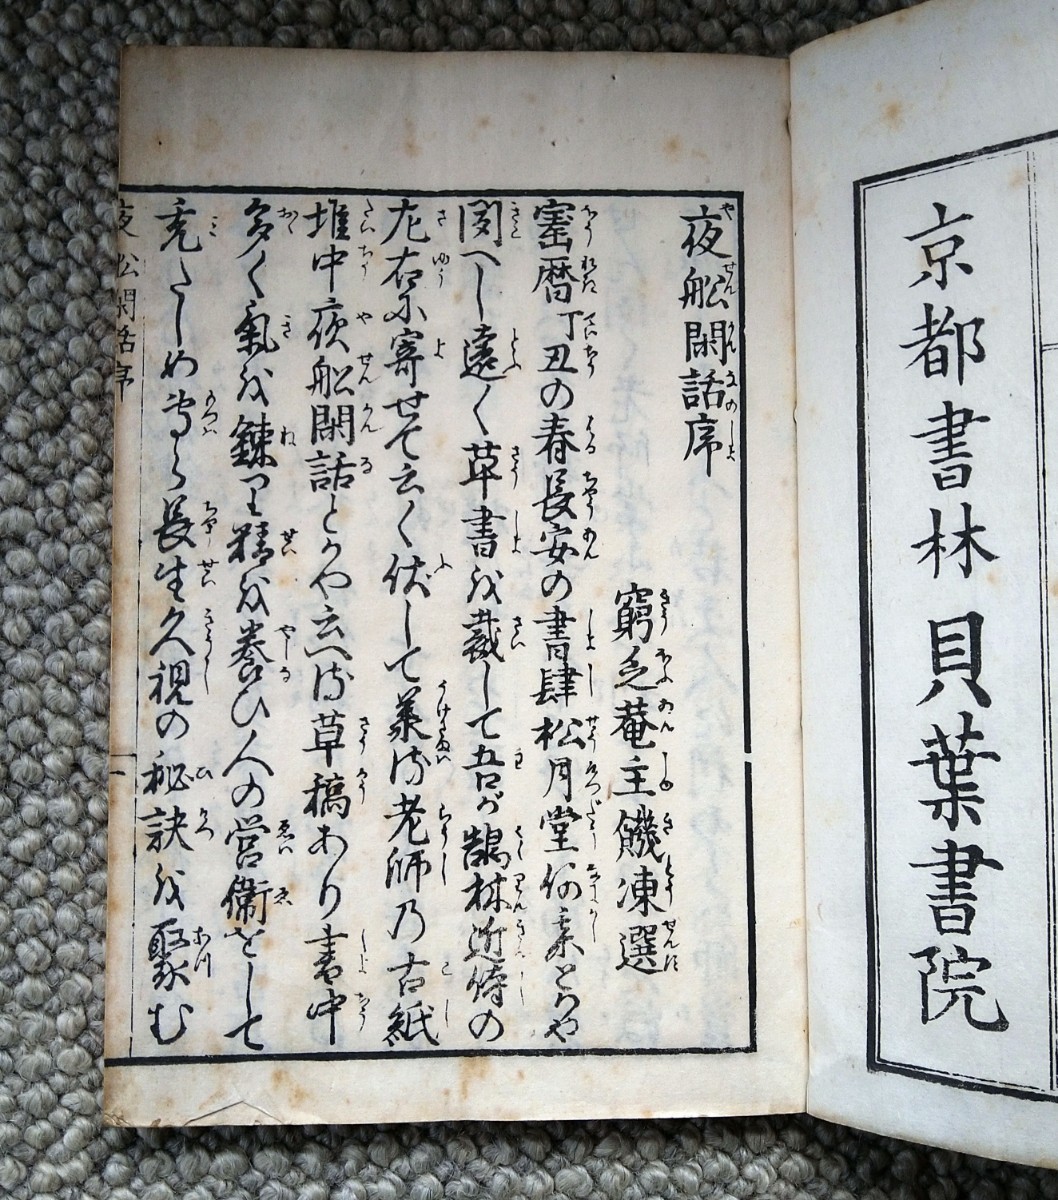 京都書林貝葉書院
夜船閑話序
窮乏菴主饑凍選
寳暦丁丑の春長安の書肆松月堂何某とかや
聞へし遠く草書を裁して吾が鵠林近侍の
左右に寄せて云く伏して承る老師の古紙
堆中夜船閑話とかや云へる草稿あり書中
多く氣を錬り精を養ひ人の営衞をして
充たしめ専ら長生久視の秘訣を聚む
夜船閑話序
一